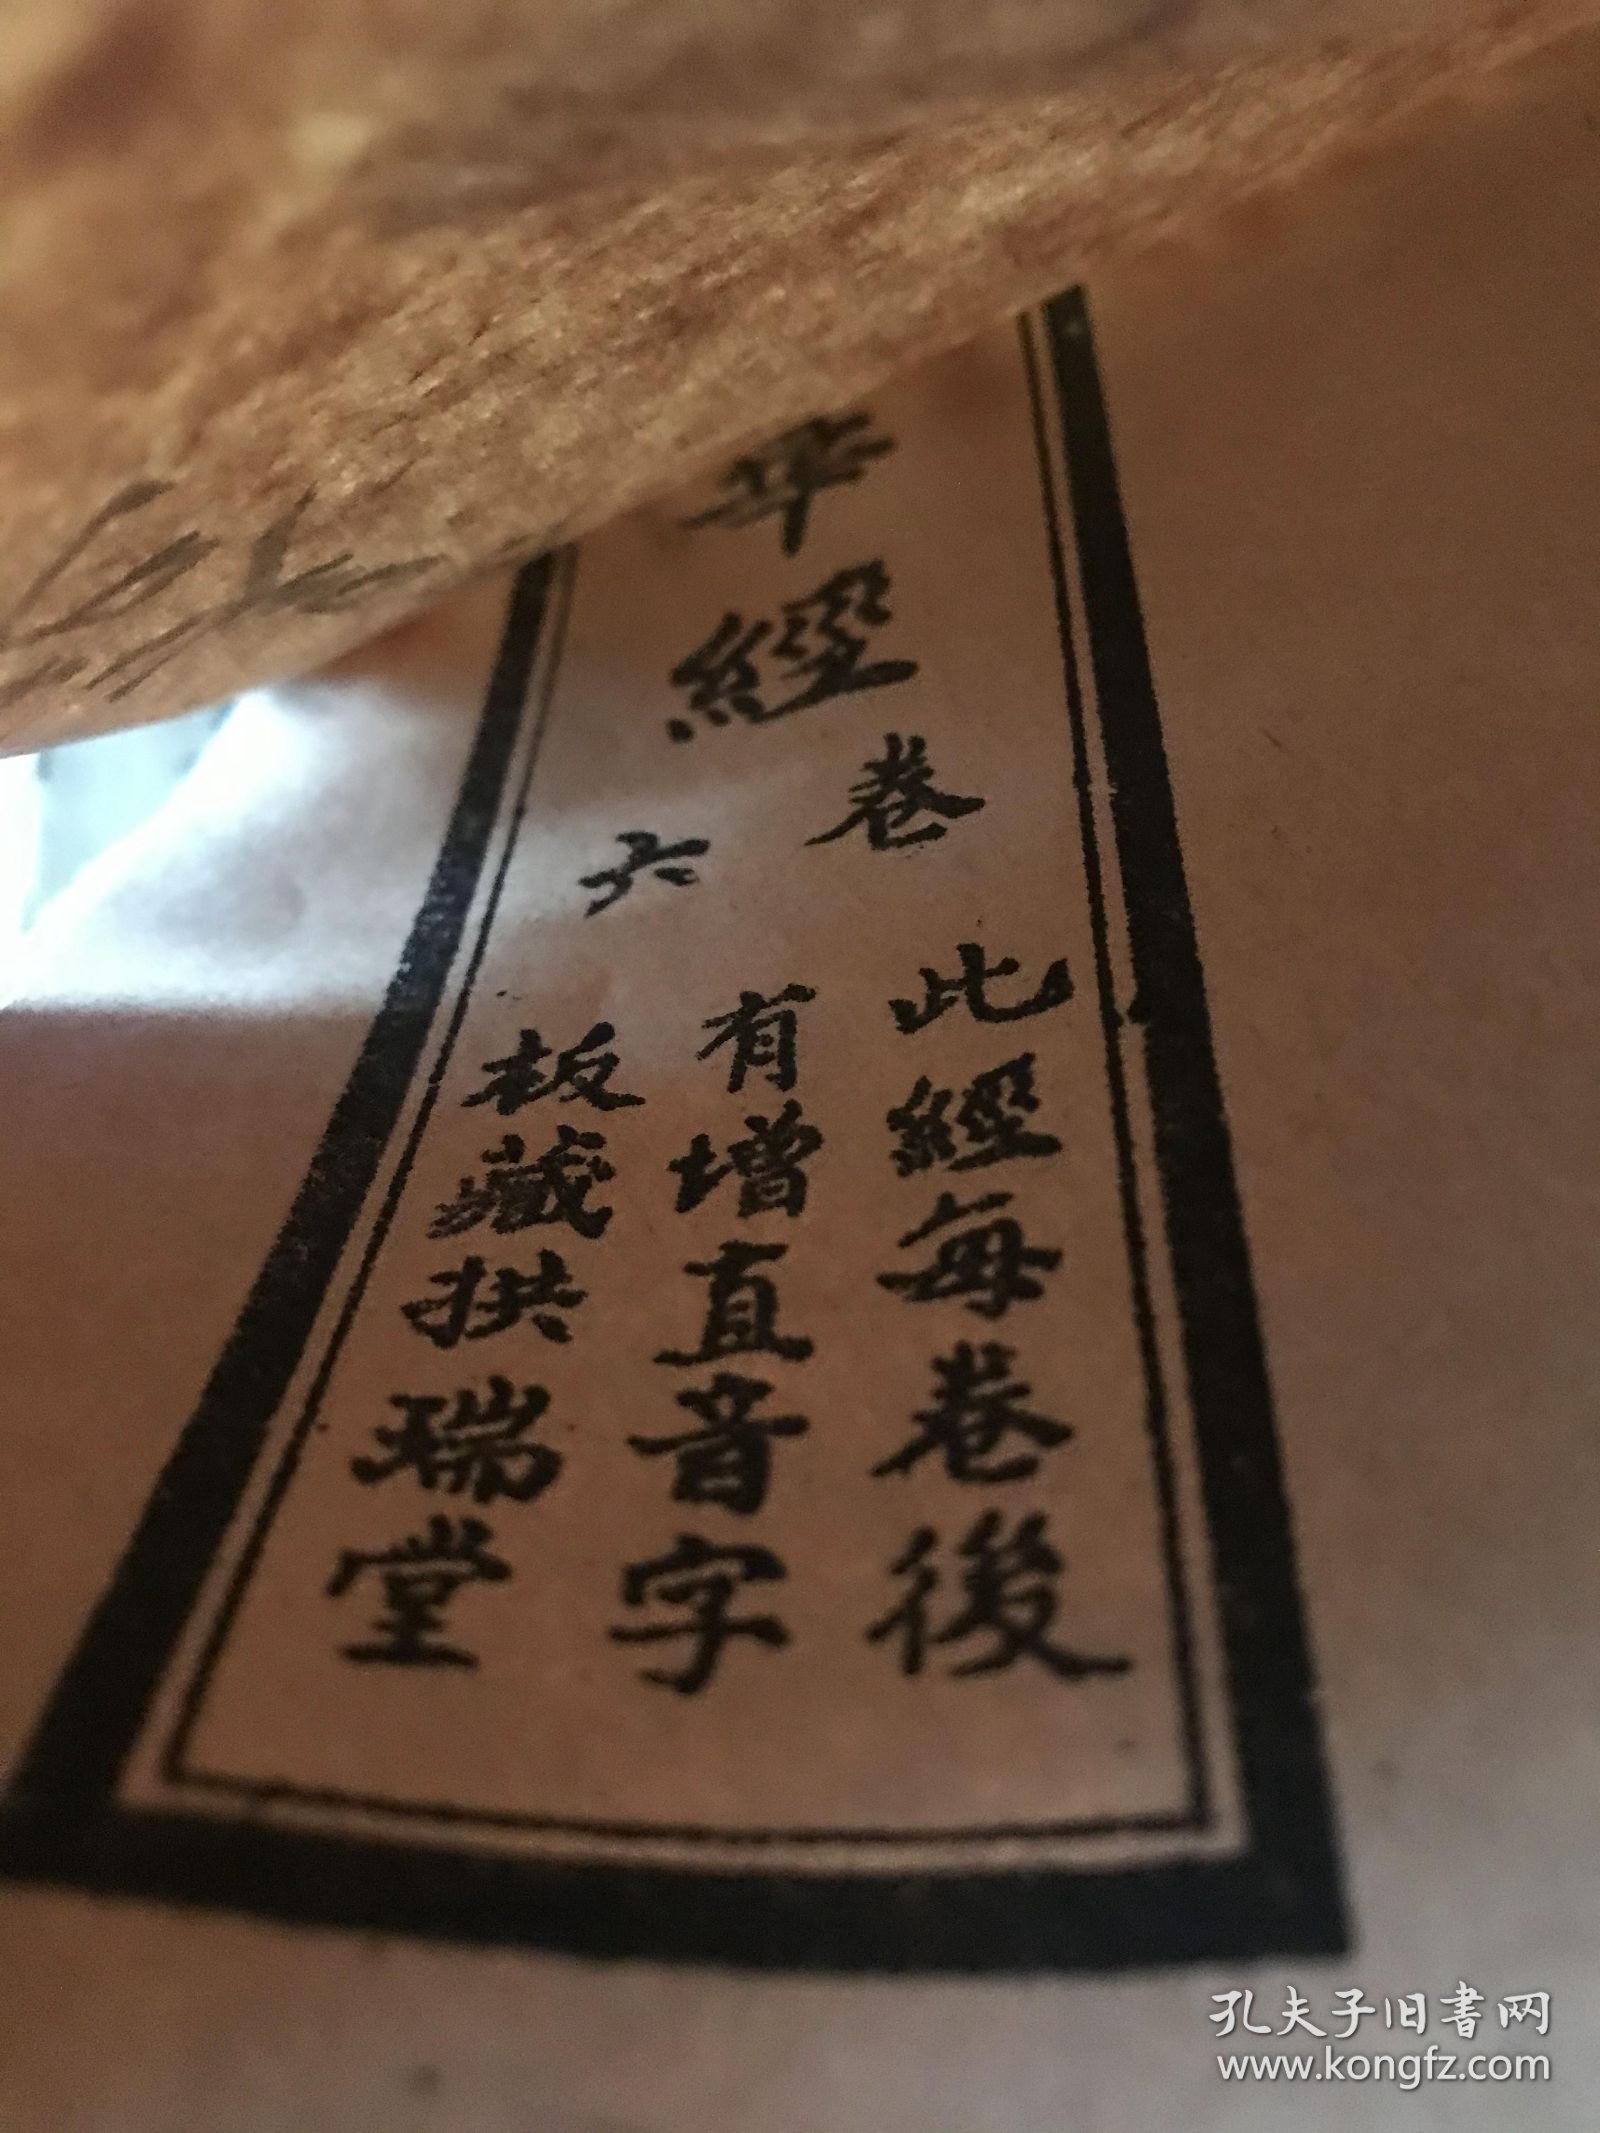 華經
卷六
此經每卷後
有增直音字
板藏拱瑞堂
孔夫子旧书网
www.kongfz.com